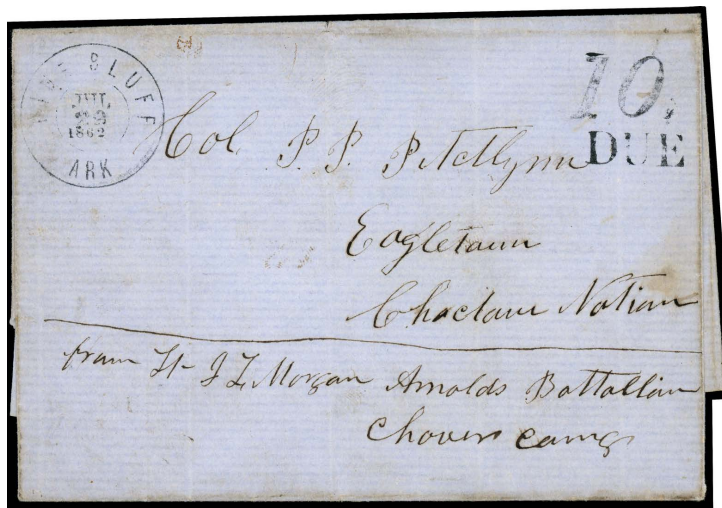 PINE BLUFF
JUL
29
1862
ARK
10,
DUE
Col P. P. Pitchlynn
Eagletown
Choctaw Nation
from Lt J L Morgan Arnolds Battallion
camp